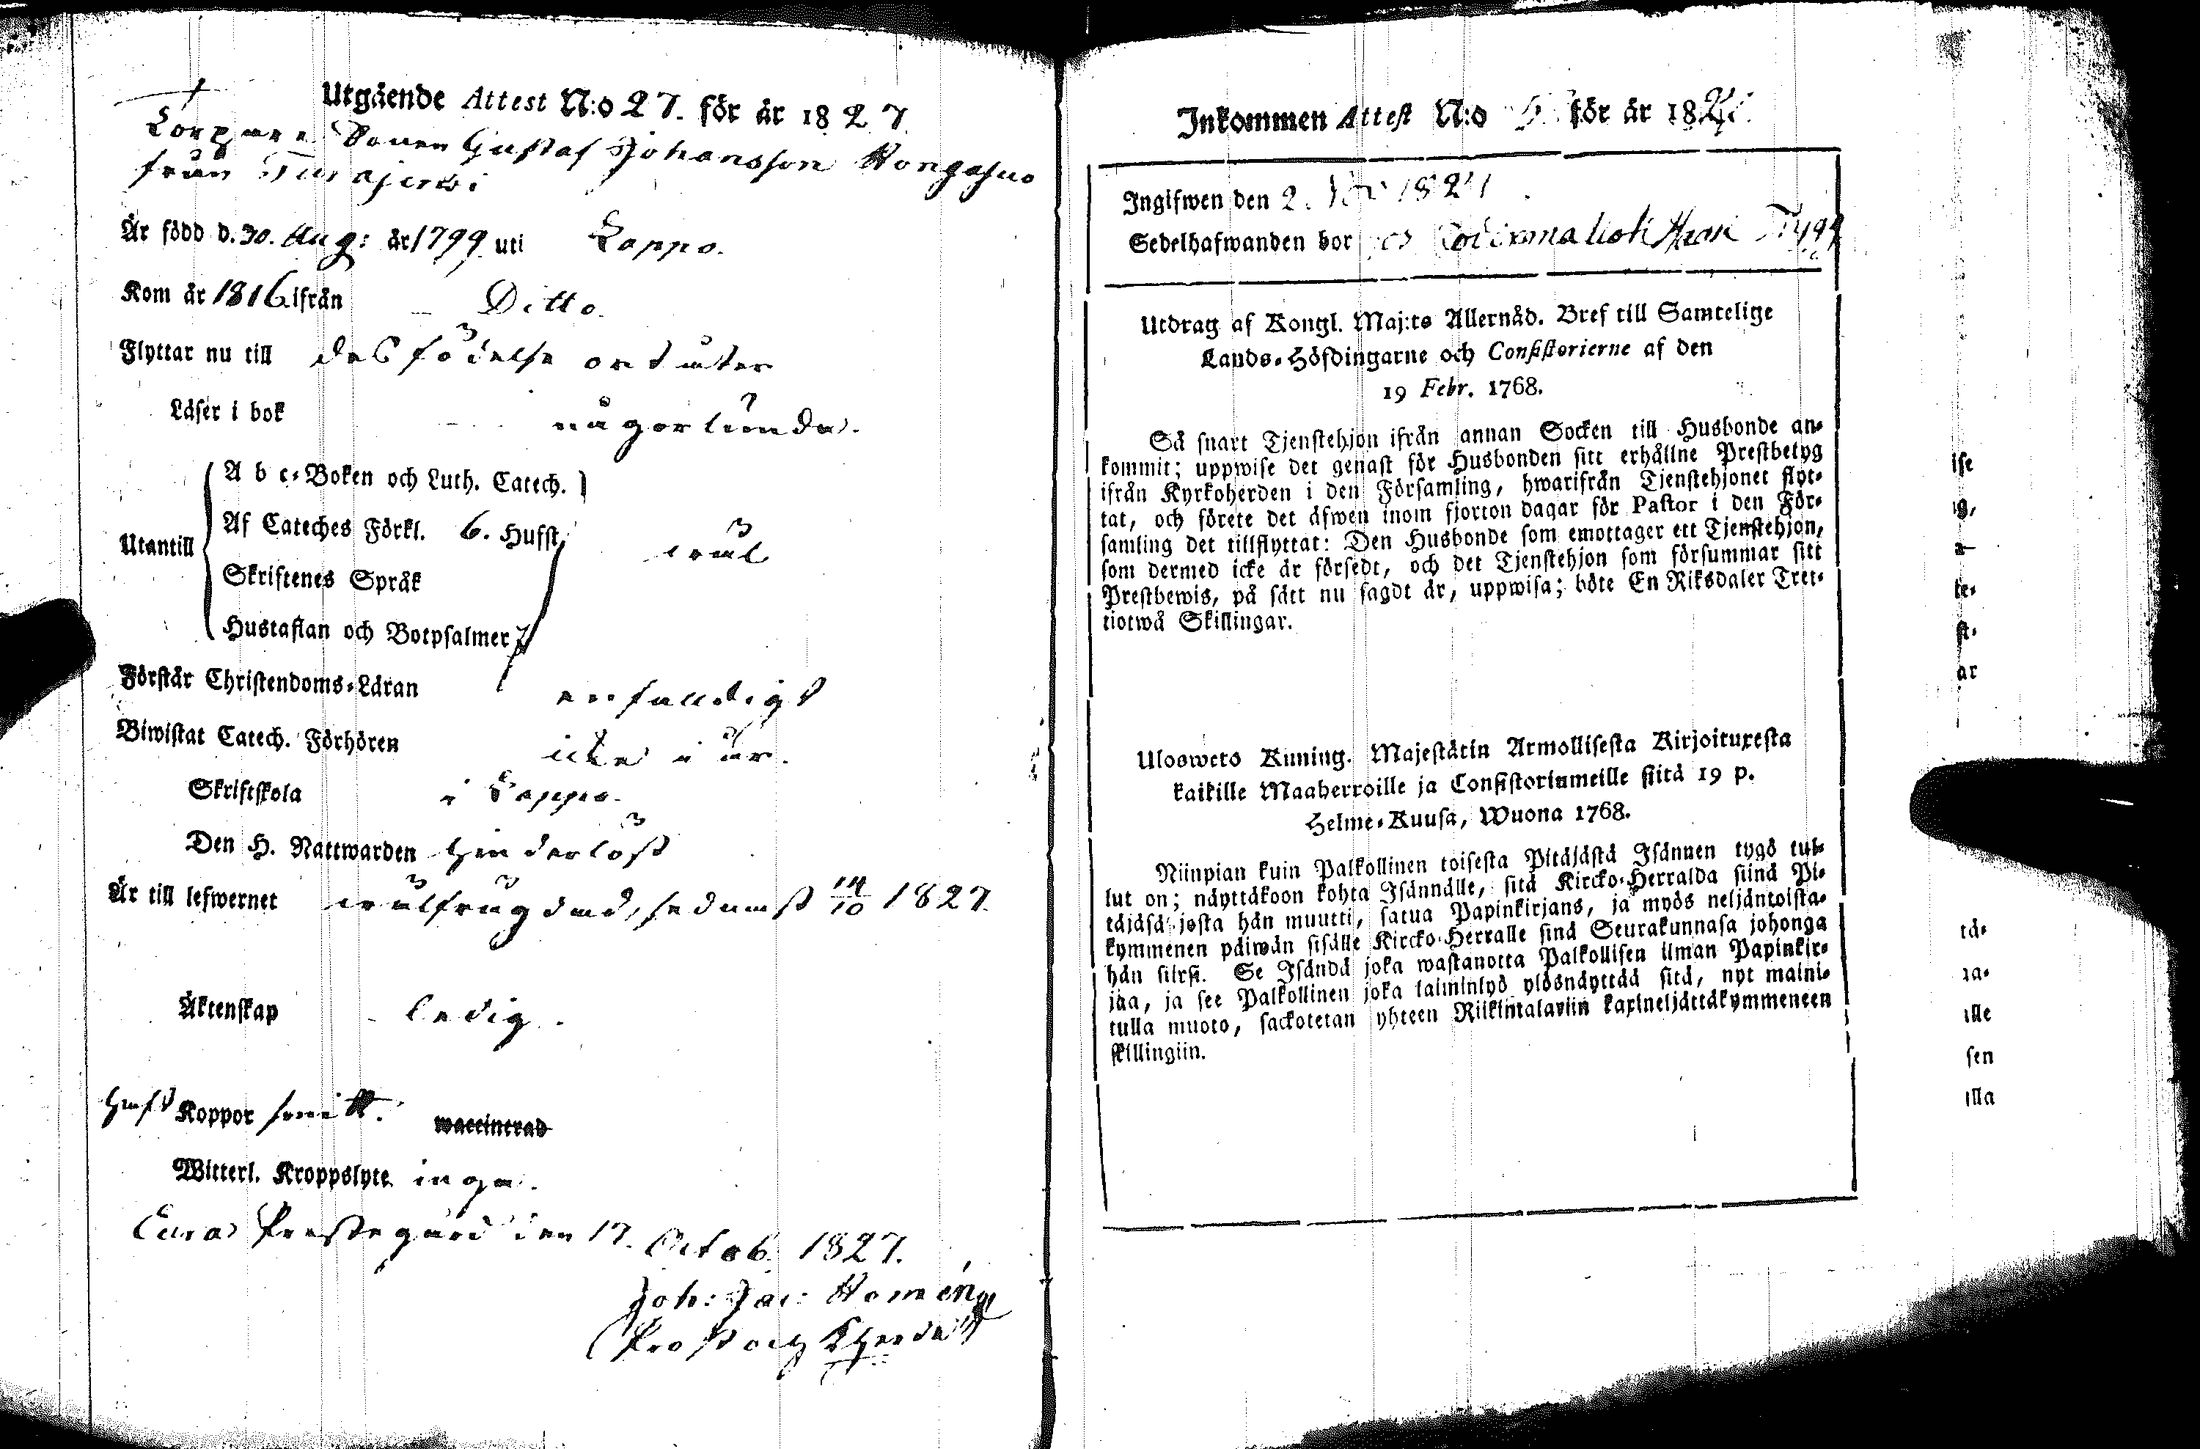 Utgående Attest N:o 27. för år 1827
Gustaf Johansson
från
Är född d. 30. Aug: år 1799 uti Lappo.
Kom år 1816 ifrån Ditto.
Flyttar nu till des födelse ort åter
Läser i bok någorlunda.
A b c-Boken och Luth. Catech.
Af Cateches Förkl. 6. Hufst.
Utantill wäl
Skriftenes Språk
Hustaflan och Botpsalmer
Förstår Christendoms-Läran enfaldigt
Biwistat Catech. Förhören icke i år.
Skriftskola i Lappo.
Den H. Nattwarden hinderlöst
Är till lefwernet wälfrägdad, sedemst 14/10 1827.
Äktenskap ledig.
Haft Koppor waccinerad
Witterl. Kroppslyte inga.
Prestegård den 17. Octob. 1827.
Joh: Jac: Homén
Prost och Kherde
Inkommen Attest N:o för år 18
Ingifwen den 2.
Sedelhafwanden bor
Utdrag af Kongl. Maj:ts Allernåd. Bref till Samtelige
Lands-Höfdingarne och Consistorierne af den
19 Febr. 1768.
Så snart Tjenstehjon ifrån annan Socken till Husbonde an-
kommit; uppwise det genast för Husbonden sitt erhållne Prestbetyg
ifrån Kyrkoherden i den Församling, hwarifrån Tjenstehjonet flyt-
tat, och förete det äfwen inom fjorton dagar för Pastor i den För-
samling det tillflyttat: Den Husbonde som emottager ett Tjenstehjon,
som dermed icke är försedt, och det Tjenstehjon som försummar sitt
Prestbewis, på sätt nu sagdt är, uppwisa; böte En Riksdaler Tret-
tiotwå Skillingar.
Uloswets Kuning. Majestätin Armollisesta Kirjoituxesta
kaikille Maaherroille ja Consistoriumeille siitä 19 p.
Helme-Kuusa, Wuona 1768.
Niinpian kuin Palkollinen toisesta Pitäjästä Isännen tygö tul-
lut on; näyttäkoon kohta Isännälle, sitä Kircko-Herralda siinä Pi-
täjäsä josta hän muutti, saatua Papinkirjans, ja myös neljäntoista-
kymmenen päiwän sisälle Kircko-Herralle sinä Seurakunnasa johonga
hän siirsi. Se Isändä joka wastanotta Palkollisen ilman Papinkir-
jaa, ja see Palkollinen joka laiminlyö ylösnäyttää sitä, nyt maini-
tulla muoto, sackotetan yhteen Riikintalariin kaxineljättäkymmeneen
skillingiin.
ise
ig,
te-
st-
ar
tä-
ra-
ille
sen
illa